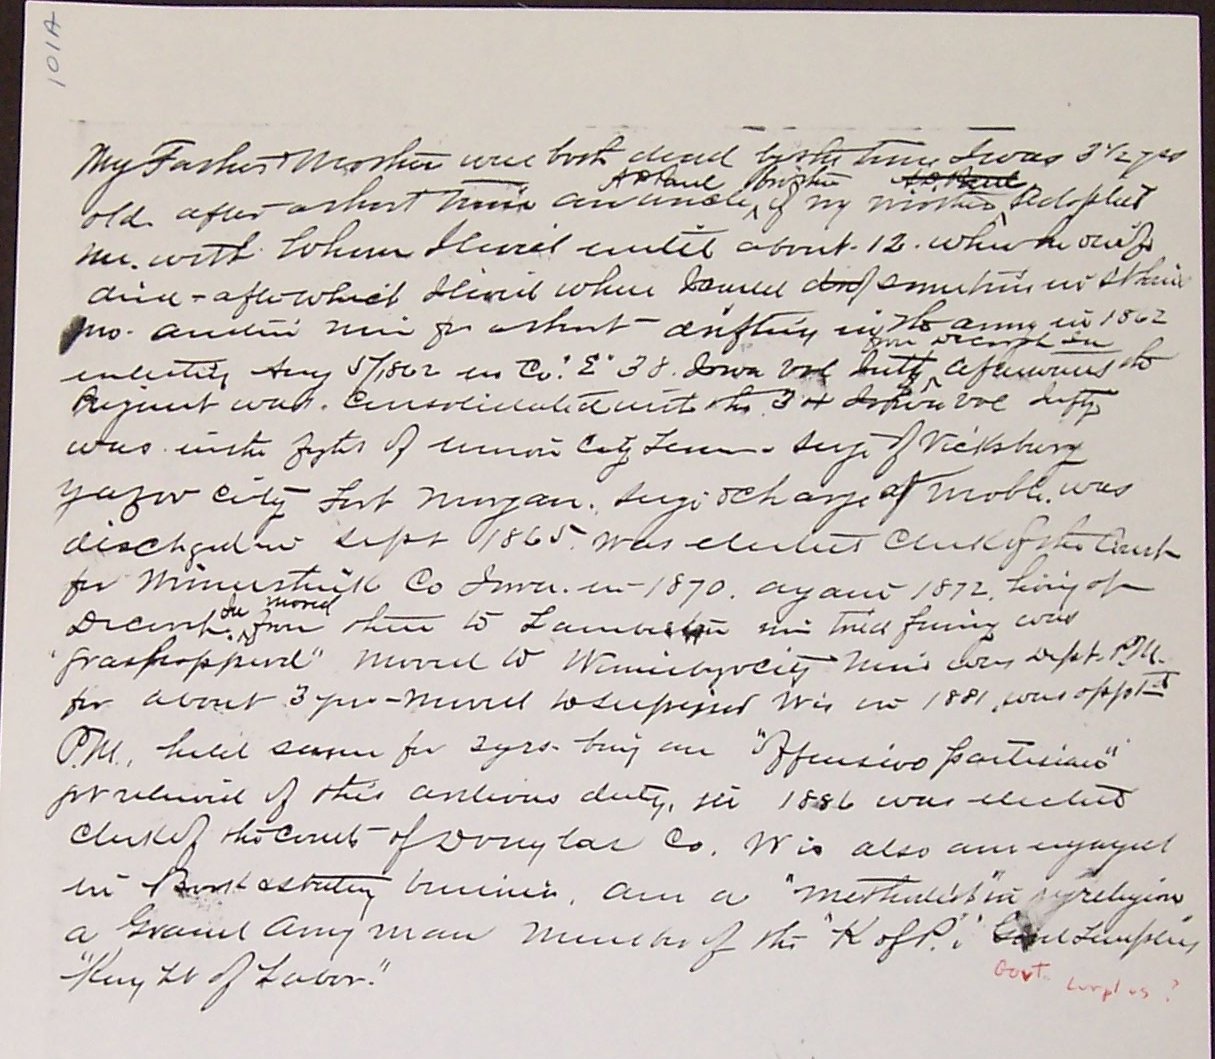 101A
My Father & Mother were both dead by the time I was 3 1/2 yrs
A P Paul brother A.P. Paul
old. after a short time an uncle, of my mother, Adopted
me. with whom I lived until about 12. when his wife
died - after which I lived where I could and sometime in St Louis
Mo. and in Min for a short drifting into the army in 1862
from Decorah Ia
enlisting Aug 5/1862 in Co. "E" 38. Iowa Vol Infty Afterwards the
Regiment was. Consolidated with the 34 Iowa Vol Infty
was in the fights of Union City Tenn - Siege of Vicksburg
Yazoo City Fort Morgan. Siege & Charge of Mobile. was
dischged in Sept 1865. Was elected Clerk of the Court
for Winneshiek Co Iowa. in 1870. again 1872. living at
Ia moved
Decorah. from there to Lamberton Min tried farming was
"grasshoppered" moved to Winnebago City Min was Dept. P.M.
for about 3 yrs - moved to Superior Wis in 1881, was appt'd
P.M., held same for 2 yrs. being an "Offensive partisan"
got relieved of this arduous duty, in 1886 was elected
Clerk of the Court of Douglas Co. Wis also am engaged
in Real estate business. am a "Methodist" in religion
a Grand Army man Member of the "K of P." Good Templar,
"Knight of Labor."
Govt. surplus?